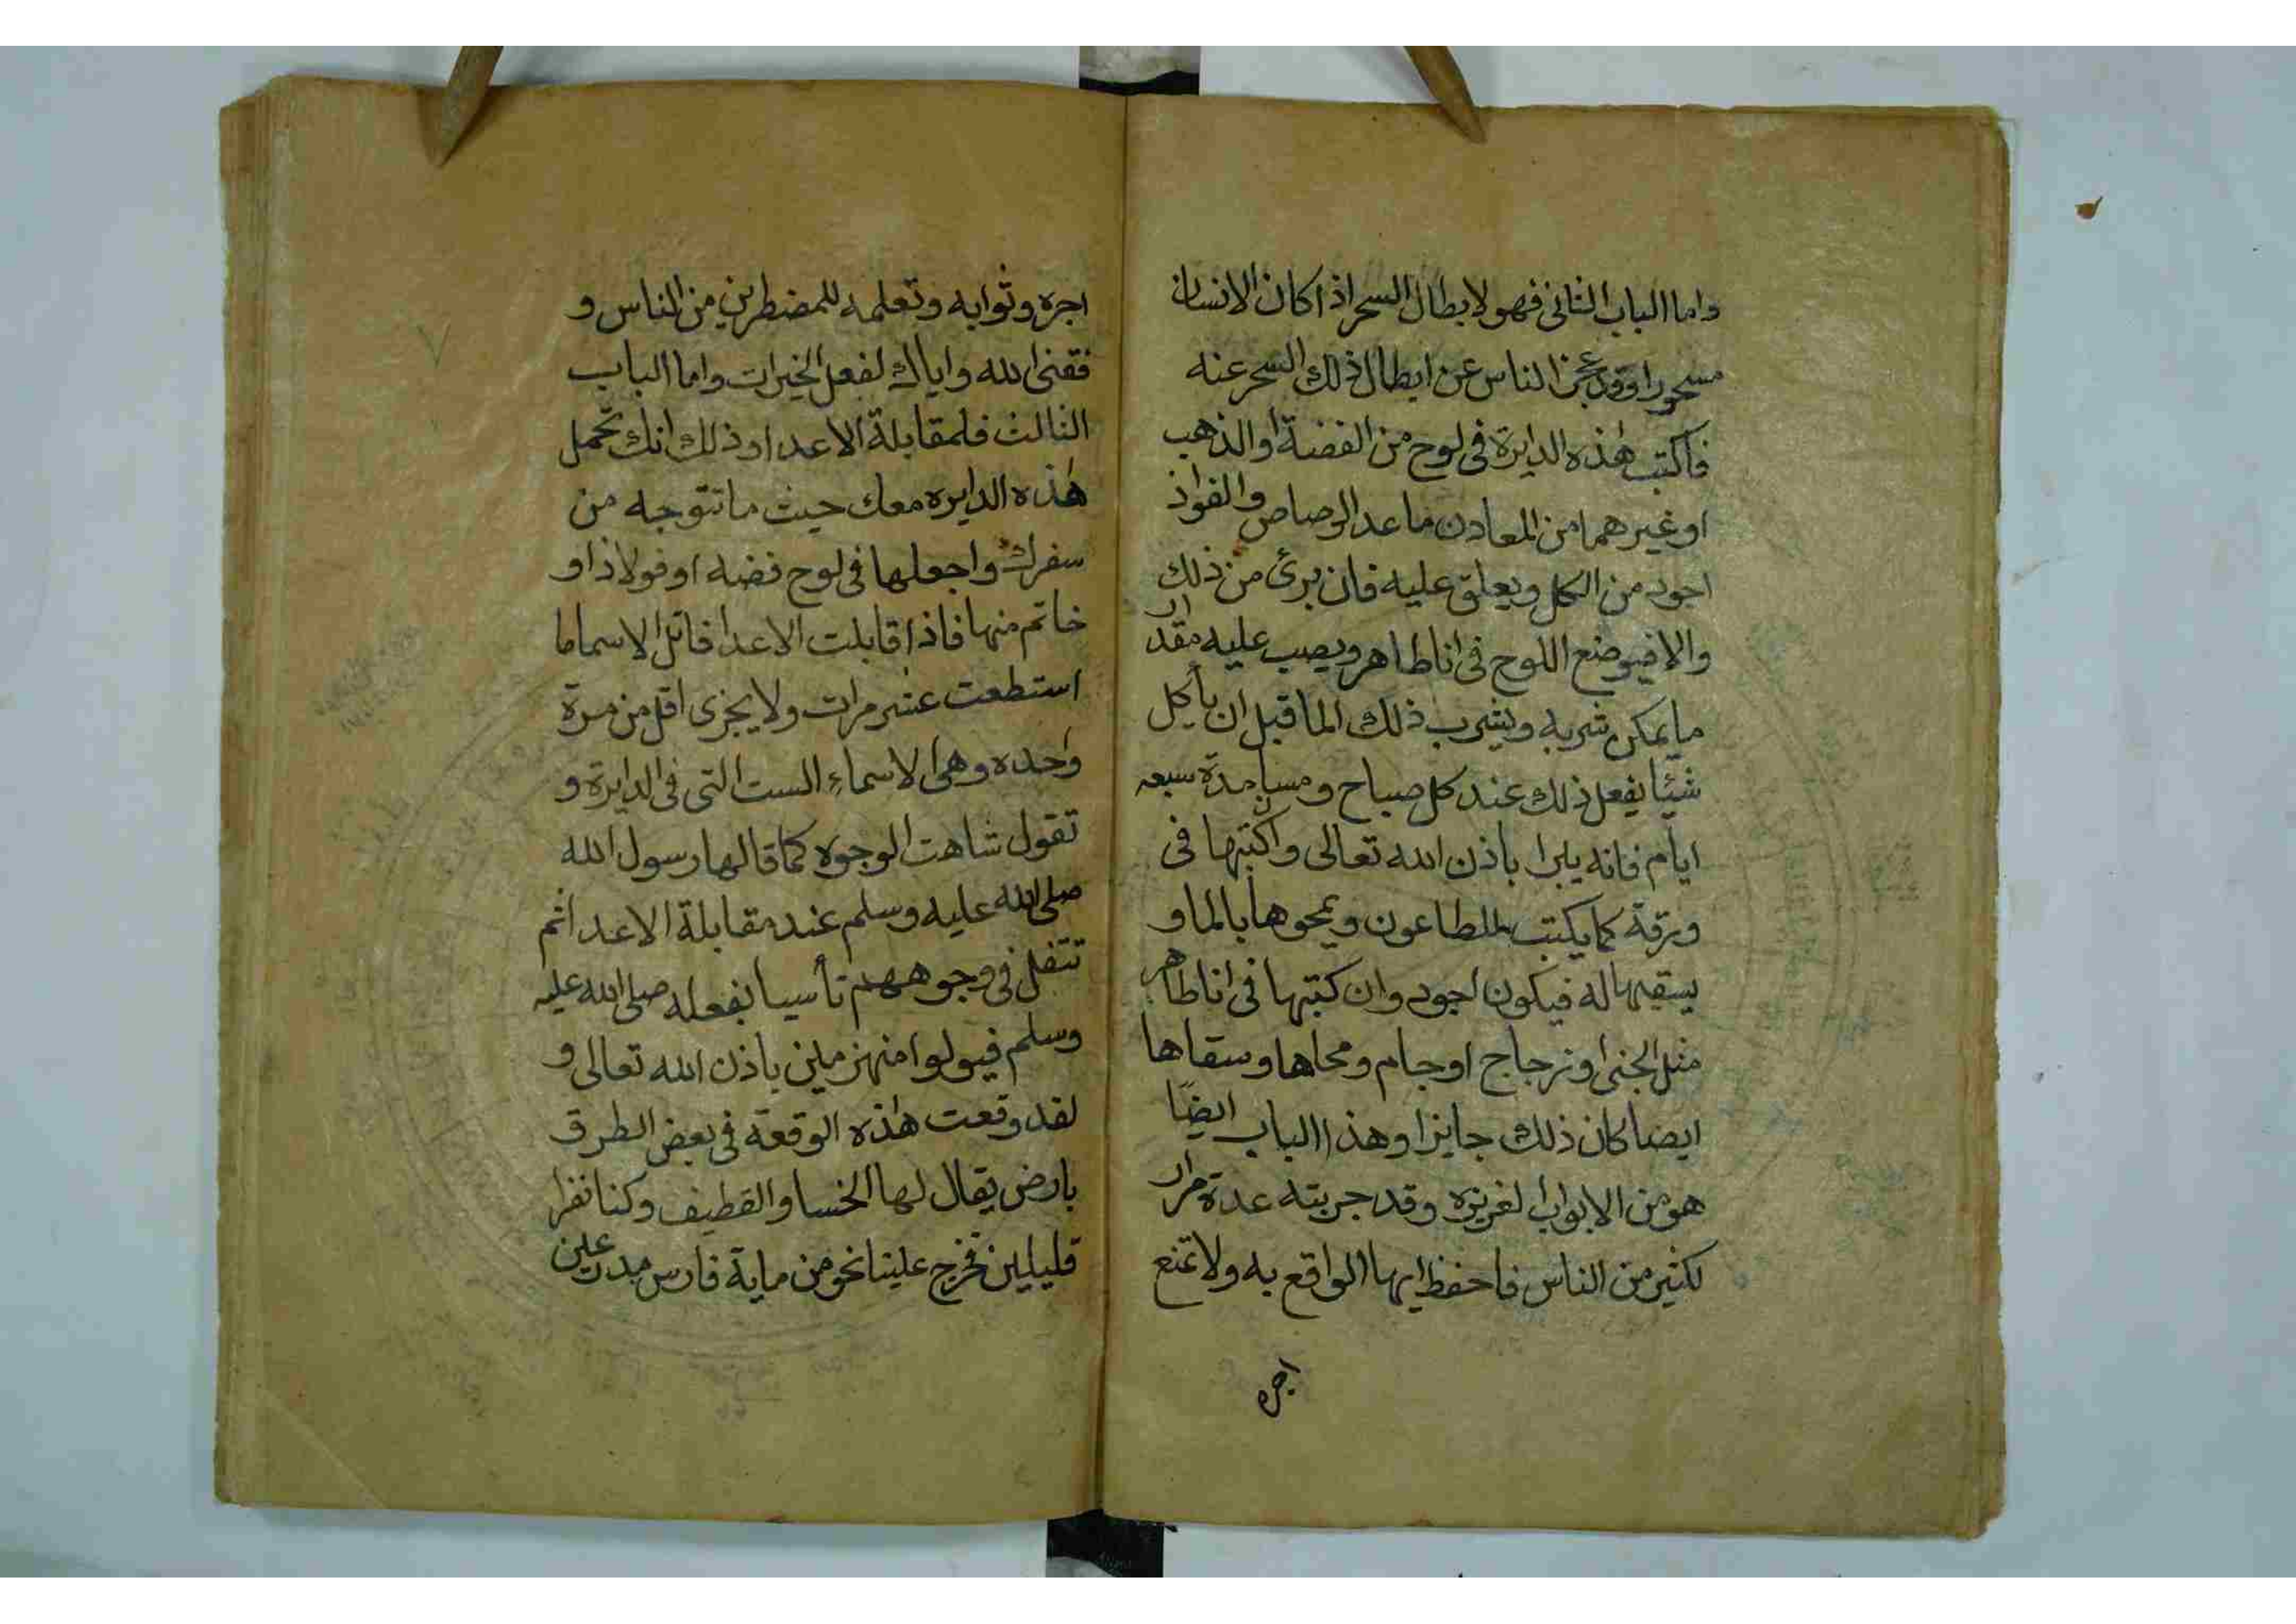 واما الباب الثانى فهو لابطال السحر اذا كان الانسان
مسحورا وقد عجز الناس عن ابطال ذلك السحر عنه
فاكتب هذه الدايرة فى لوح من الفضة او الذهب
او غيرهما من المعادن ما عدا الرصاص والفولاذ
اجود من الكل ويعلق عليه فان برئ من ذلك
والا فيوضع اللوح فى انا طاهر ويصب عليه مقدار
ما يمكن شربه ويشرب ذلك الما قبل ان يأكل
شيئا يفعل ذلك عند كل صباح ومسا مدة سبعه
ايام فانه يبرا باذن الله تعالى وان اكتبها فى
ورقة كما يكتب للطاعون ويمحوها بالما و
يسقيها له فيكون اجود وان كتبها فى انا طاهر
مثل الجنى وزجاج او جام ومحاها وسقاها
ايضا كان ذلك جايزا وهذا الباب ايضًا
هو من الابواب لغريزه وقد جربته عدة مرار
لكثير من الناس فاحفظ ايها الواقع به ولا تمنع
اجره
اجره وثوابه وتعلمه للمضطرين من الناس و
فقنى الله واياك لفعل الخيرات واما الباب
الثالث فلمقابلة الاعدا وذلك انك تحمل
هذه الدايره معك حيث ما تتوجه من
سفرك واجعلها فى لوح فضه او فولاذ او
خاتم منها فاذا قابلت الاعدا فاتل الاسما ما
استطعت عشر مرات ولا يجزى اقل من مرة
واحده وهى الاسماء الست التى فى الدايرة و
تقول شاهت الوجوه كما قالها رسول الله
صلى الله عليه وسلم عند مقابلة الاعدا ثم
تتفل فى وجوههم تأسيا بفعله صلى الله عليه
وسلم فيولوا منهزمين باذن الله تعالى و
لقد وقعت هذه الوقعة فى بعض الطرق
بارض يقال لها الخسا والقطيف وكنا نفرا
قليلين فخرج علينا نحو من ماية فارس مدرعين